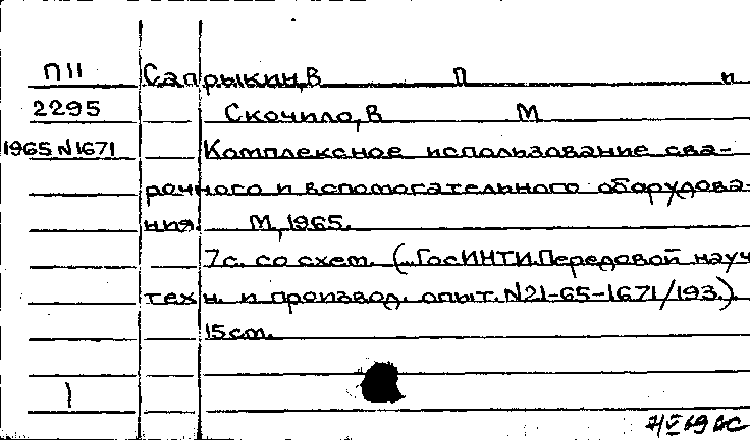 П11 Сапрыкин, В П и
2295 Скочило, В М
1965 N1671 Комплексное использование сва-
рочного и вспомогательного оборудова-
ния. М, 1965.
7с. со схем. (...ГосИНТИ.Передовой науч
техн. и производ. опыт. N21-65-1671/193.).
15 см.
1